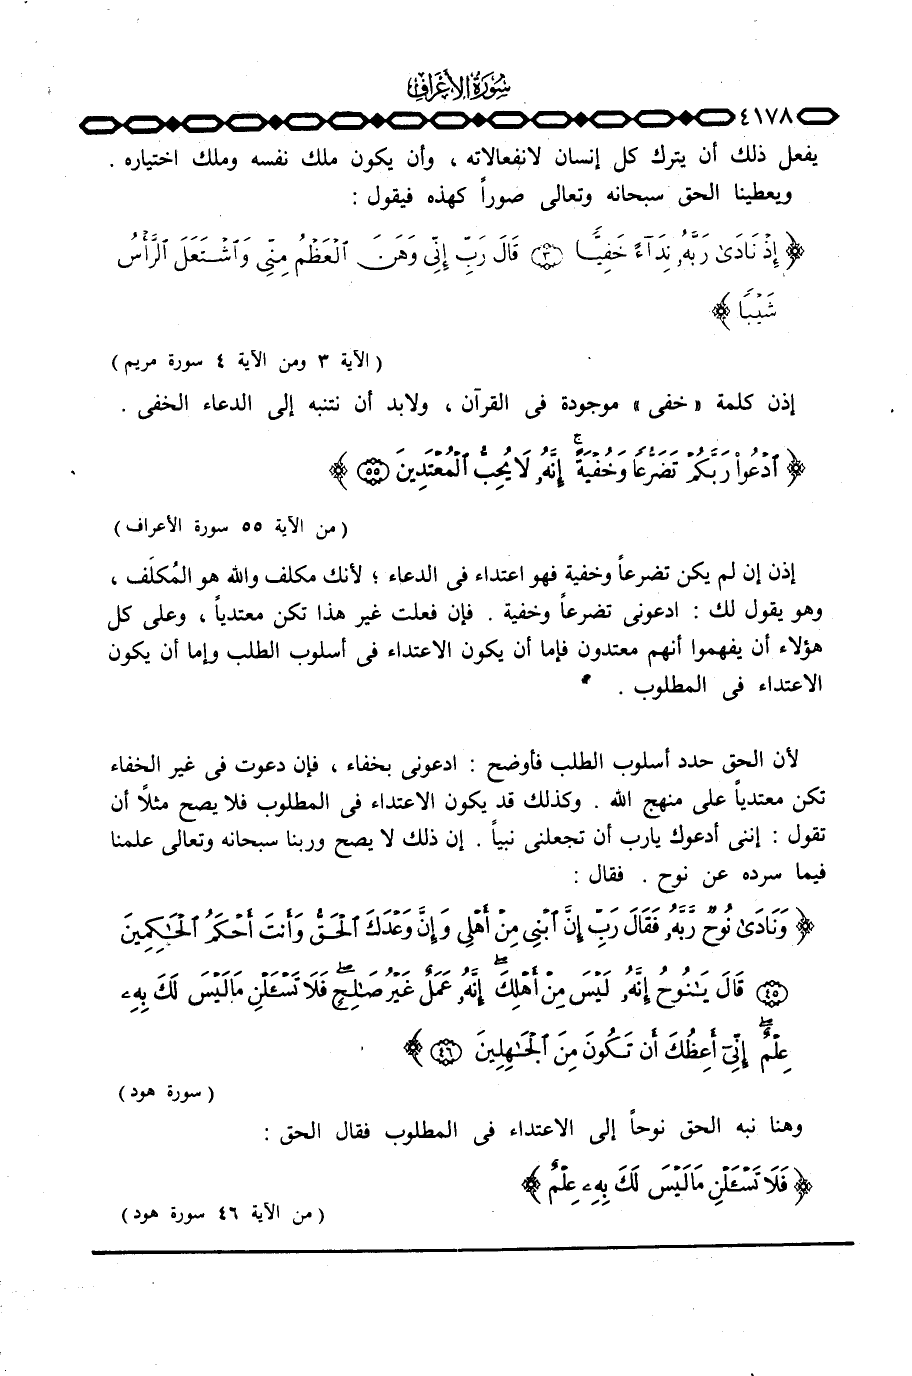 سُورَةُ الأَعْرَافِ
٤١٧٨
يفعل ذلك أن يترك كل إنسان لانفعالاته ، وأن يكون ملك نفسه وملك اختياره .
ويعطينا الحق سبحانه وتعالى صوراً كهذه فيقول :
﴿ إِذْ نَادَىٰ رَبَّهُۥ نِدَآءً خَفِيًّا ۝٣ قَالَ رَبِّ إِنِّى وَهَنَ ٱلْعَظْمُ مِنِّى وَٱشْتَعَلَ ٱلرَّأْسُ
شَيْبًا ﴾
( الآية ٣ ومن الآية ٤ سورة مريم )
إذن كلمة « خفى » موجودة فى القرآن ، ولابد أن نتنبه إلى الدعاء الخفى .
﴿ ٱدْعُوا۟ رَبَّكُمْ تَضَرُّعًا وَخُفْيَةً ۚ إِنَّهُۥ لَا يُحِبُّ ٱلْمُعْتَدِينَ ۝٥٥ ﴾
( من الآية ٥٥ سورة الأعراف )
إذن إن لم يكن تضرعاً وخفية فهو اعتداء فى الدعاء ؛ لأنك مكلف والله هو المُكلَف ،
وهو يقول لك : ادعونى تضرعاً وخفية . فإن فعلت غير هذا تكن معتدياً ، وعلى كل
هؤلاء أن يفهموا أنهم معتدون فإما أن يكون الاعتداء فى أسلوب الطلب وإما أن يكون
الاعتداء فى المطلوب .
لأن الحق حدد أسلوب الطلب فأوضح : ادعونى بخفاء ، فإن دعوت فى غير الخفاء
تكن معتدياً على منهج الله . وكذلك قد يكون الاعتداء فى المطلوب فلا يصح مثلاً أن
تقول : إننى أدعوك يارب أن تجعلنى نبياً . إن ذلك لا يصح وربنا سبحانه وتعالى علمنا
فيما سرده عن نوح . فقال :
﴿ وَنَادَىٰ نُوحٌ رَّبَّهُۥ فَقَالَ رَبِّ إِنَّ ٱبْنِى مِنْ أَهْلِى وَإِنَّ وَعْدَكَ ٱلْحَقُّ وَأَنتَ أَحْكَمُ ٱلْحَٰكِمِينَ
۝٤٥ قَالَ يَٰنُوحُ إِنَّهُۥ لَيْسَ مِنْ أَهْلِكَ ۖ إِنَّهُۥ عَمَلٌ غَيْرُ صَٰلِحٍ ۖ فَلَا تَسْـَٔلْنِ مَا لَيْسَ لَكَ بِهِۦ
عِلْمٌ ۖ إِنِّىٓ أَعِظُكَ أَن تَكُونَ مِنَ ٱلْجَٰهِلِينَ ۝٤٦ ﴾
( سورة هود )
وهنا نبه الحق نوحاً إلى الاعتداء فى المطلوب فقال الحق :
﴿ فَلَا تَسْـَٔلْنِ مَا لَيْسَ لَكَ بِهِۦ عِلْمٌ ﴾
( من الآية ٤٦ سورة هود )